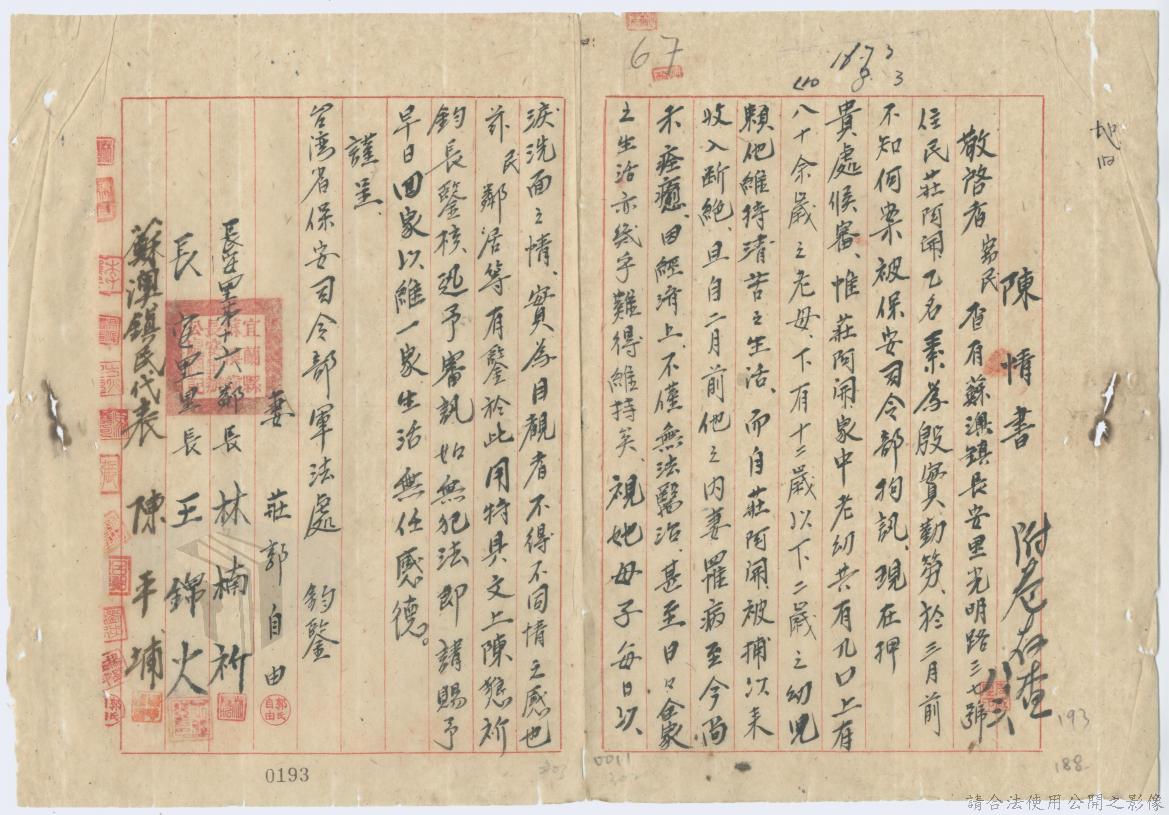 陳情書
敬啓者 窃民 查有蘇澳鎮長安里光明路三七號
住民莊阿開乙名素為殷實勤勞、於三月前
不知何案被保安司令部拘訊、現在押
貴處候審、惟莊阿開家中老幼共有九口上有
八十余歲之老母、下有十二歲以下二歲之幼兒
賴他維持清苦之生活、而自莊阿開被捕以來
收入断絕、且自二月前他之內妻罹病至今尚
未痊癒、因經濟上、不僅無法醫治、甚至日日全家
之生活亦幾乎難得維持矣、視她母子每日以
淚洗面之情、實為目觀者不得不同情之感也
茲民鄰居等有鑒於此用特具文上陳懇祈
鈞長鑒核迅予審訊如無犯法即請賜予
早日回家以維一家生活無任感德。
謹呈、
台湾省保安司令部軍法處 鈞鑒
妻 莊郭自由
長安里第十六鄰長 林楠祈
長安里里長 王錦火
蘇澳鎮民代表 陳平埔
附卷存查
67
18.7 3
8. 3
193
188
0193
郭氏自由
請合法使用公開之影像